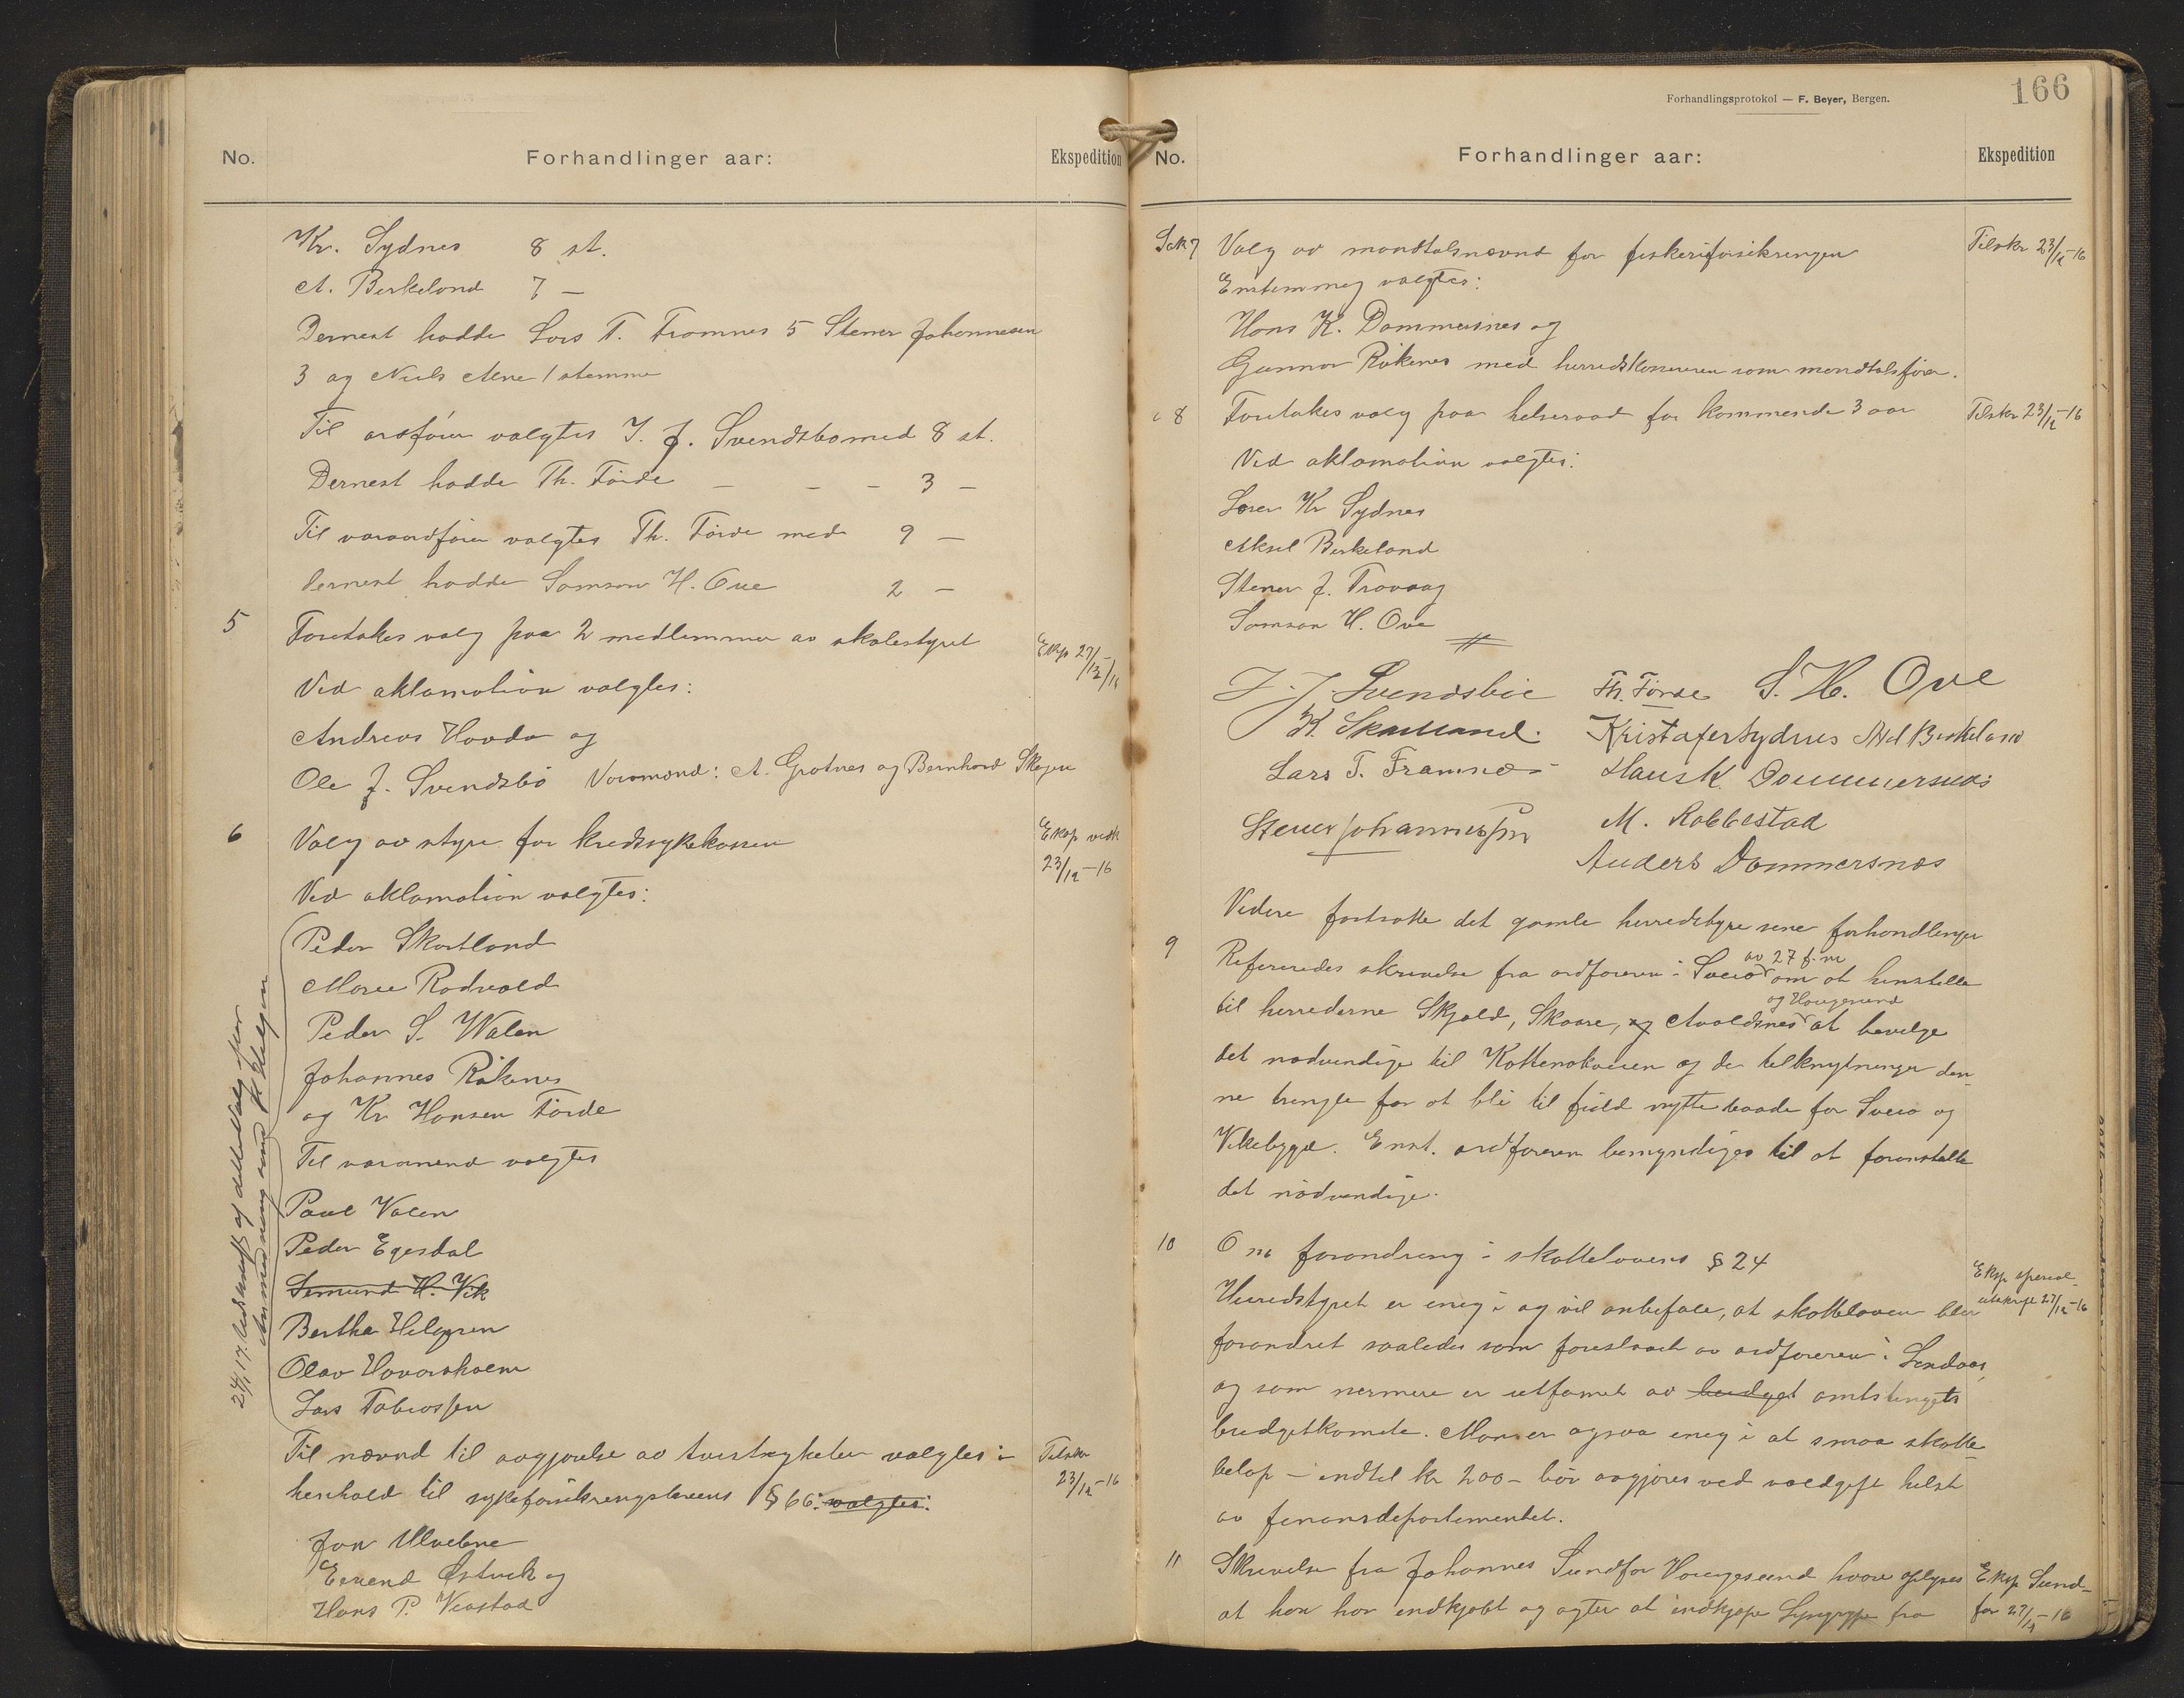 No.
Forhandlinger aar:
Ekspedition
Kr. Sydnes 8 st.
A. Berkeland 7 —
Dernest hadde Lars T. Framnes 5 Stener Johannesen
3 og Niels Alne 1 stemme
Til ordfører valgtes J. J. Svendsbø med 8 st.
Dernest hadde Th. Førde — — — 3 —
Til varaordfører valgtes Th. Førde med 9 —
dernest hadde Samson H. Ove 2 —
5 Foretakes valg paa 2 medlemmer av skolestyret
Eksp 27/12/16
Ved aklamation valgtes:
Andreas Hovda og
Ole J. Svendsbø Varamænd: A. Grotnes og Bernhard Skogen
6 Valg av styre for kredssykekassen
Eksp vedk
23/12-16
Ved aklamation valgtes:
Peder Skartland
Marie Rødvold
Peder S. Walen
Johannes Røkenes
og Kr Hansen Førde
Til varamænd valgtes
Paul Valen
Peder Egesdal
Semund H. Vik
Bertha Helgesen
Olav Hovarskolm
Lars Tobiassen
Til nævnd til avgjørelse av tvistigheter valgtes i
Tilskr
23/12-16
henhold til sykeforsikringslovens § 66: valgtes:
Jon Ulvebne
Eivend Østvik og
Hans P. Viastad
Forhandlingsprotokol — F. Beyer, Bergen.
166
No.
Forhandlinger aar:
Ekspedition
Sak 7 Valg av mandtalsnævnd for fiskeriforsikringen
Tilskr 23/12-16
Enstemmig valgtes:
Hans K. Dommersnes og
Gunnar Røkenes med herredskasereren som mandtalsfører.
" 8 Foretakes valg paa helseraad for kommende 3 aar
Tilskr 23/12-16
Ved aklamation valgtes:
Lærer Kr Sydnes
Aksel Berkeland
Stener J. Trovaag
Samson H. Ove
J. J. Svendsbøe Th. Førde S. H. Ove
K. Skartland. Kristofer Sydnes Aksel Berkeland
Lars T. Framnes Hans K. Dommersnes
Stener Johannessen M. Robbestad
Anders Dommersnes
Videre fortsatte det gamle herredstyre sine forhandlinger
av 27 f. m
9 Refereredes skrivelse fra ordføreren i Sveio om at henstille
og Haugesund
til herrederne Skjold, Skaare, og Avaldsnes at bevilge
det nødvendige til Kattenakveien og de tilknytninger den-
ne trenger for at bli til fuld nytte baade for Sveio og
Vikebygd. Enst. ordføreren bemyndiges til at foranstalte
det nødvendige.
10 Om forandring i skattelovens § 24
Eksp special
utskrift 27/12-16
Herredstyret er enig i og vil anbefale, at skatteloven blir
forandret saaledes som foreslaat av ordføreren i Lindaas,
og som nermere er utformet av budget amtstingets
budgetkomite. Man er ogsaa enig i at smaa skatte
beløp — indtil kr 200 – bør avgjøres ved voldgift helst
av finansdepartementet.
11 Skrivelse fra Johannes Sundfør Haugesund hvori oplyses
Eksp Sund-
før 27/12-16
at han har indkjøbt og agter at indkjøpe fra